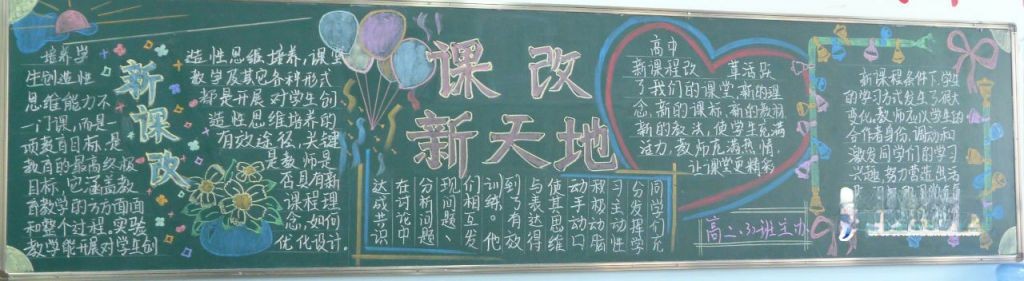 培养学
生创造性
思维能力不
一门课,而是
项教育目标,是
教育的最高终极
目标,它涵盖教
育教学的方方面面
和整个过程。实验
教学能开展对学生创
新课改
造性思维培养,课堂
教学及其它各种形式
都是开展对学生创
造性思维培养的
有效途径,关键
是教师是
否具有新
课程理
念,如何
优化设计。
课改
新天地
同学们充
分发挥学
习主动性
积极动脑
动手动口
使其思维
与表达得
到了有效
训练。他
们相互发
现问题、
分析问题
在讨论中
达成共识
高中
新课程改革活跃
了我们的课堂,新的理
念,新的课标,新的教材
新的教法,使学生充满
活力,教师充满热情,
让课堂更精彩
高二.(3)班主办
新课程条件下,学生
的学习方式发生了很大
变化,教师应以学生的
合作者身份,调动和
激发同学们的学习
兴趣,努力营造出活